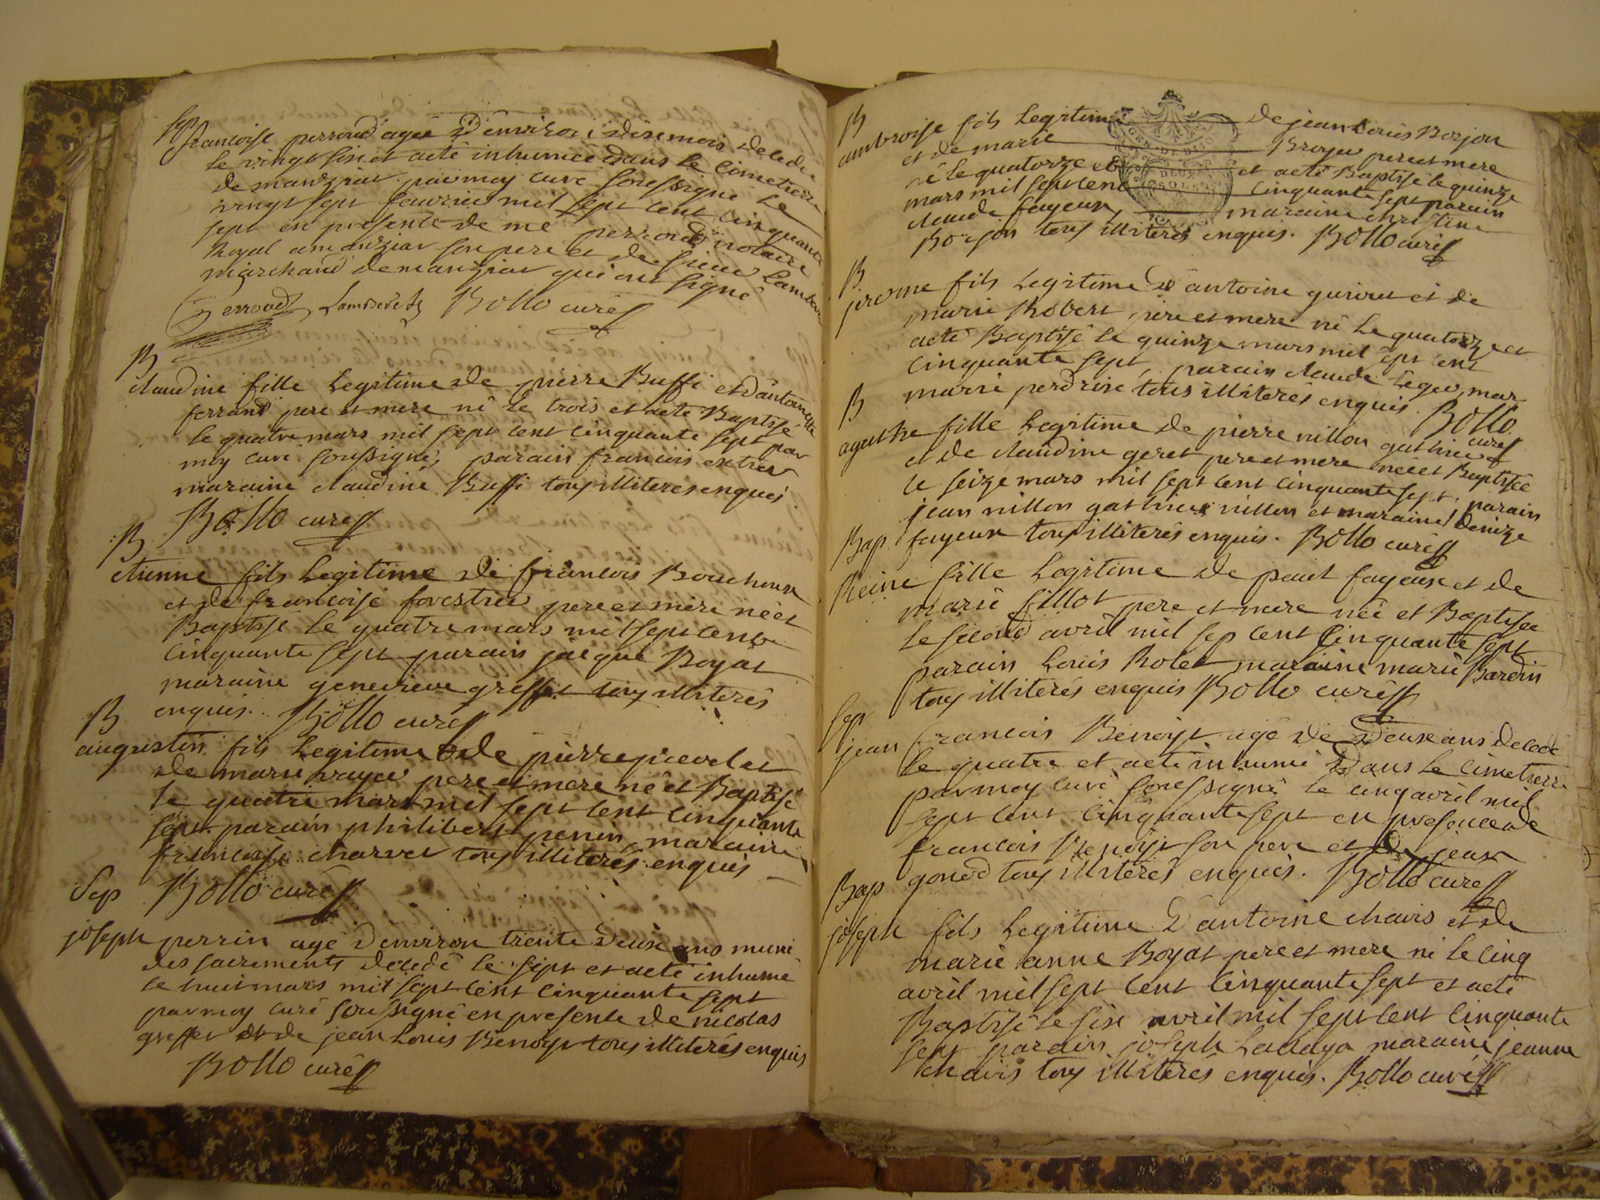 Sep
francoise perroud agée d'environ dixe mois decede
le vingt six et acté inhumée dans le Cimetierre
de manziat par moy curé soussigné le
vingt sept fevrier mil sept cent cinquante
sept en presente de me perroud notaire
Royal a manziat son pere et de sieur Lambert
marchand de manziat qui ont signé
perroud Lamberet Bollo curé
B
claudine fille Legitime de pierre Buffi et d'antoinette
ferrand pere et mere né le trois et acté Baptisé
le quatre mars mil sept cent cinquante sept par
moy curé soussigné, parain francois
maraine claudine Buffi tous illiterés enquis
Bollo curé
B
etienne fils Legitime de francois Bouchoux
et de francoise forestier pere et mere né et
Baptisé le quatre mars mil sept cent
cinquante sept parain jacque Boyat
maraine genevieve greffet tous illiterés
enquis. Bollo curé
B
augustin fils Legitime de pierre
de marie pere et mere né et Baptisé
le quatre mars mil sept cent cinquante
sept parain philibert perrin maraine
francoise charvet tous illiterés enquis
Sep Bollo curé
joseph perrin agé d'environ trente deux ans muni
des sacrements decedé le sept et acté inhumé
le huit mars mil sept cent cinquante sept
par moy curé soussigné en presente de nicolas
greffet et de jean Louis Benoyt tous illiterés enquis
Bollo curé
B
ambroise fils Legitime de jean Louis Borjon
et de marie Broyer pere et mere
né le quatorze et et acté Baptisé le quinze
mars mil sept cent cinquante sept parain
claude fayeux maraine christine
Borjon tous illiterés enquis. Bollo curé
B
jerome fils Legitime d'antoine guirut et de
marie Robert pere et mere né le quatorze et
acté Baptisé le quinze mars mil sept cent
cinquante sept, parain claude Leger, mar.
marie perdrise tous illiterés enquis. Bollo
B curé
agathe fille Legitime de pierre nillon gathier
et de claudine geret pere et mere née et Baptisée
le seize mars mil sept cent cinquante sept. parain
jean nillon gathier nillon et maraine denize
Bap fayeux tous illiterés enquis. Bollo curé
Reine fille Legitime de paul fayeux et de
marie fillot pere et mere née et Baptisée
le second avril mil sep cent cinquante sept
parain Louis Rolet maraine marie Bardin
tous illiterés enquis Bollo curé
Sep
jean francois Benoyt agé de deux ans decedé
le quatre et acté inhumé dans le cimetierre
par moy curé soussigné le cinq avril mil
sept cent cinquante sept en presence de
francois Benoyt son pere et de jean
Bap gonod tous illiterés enquis. Bollo curé
joseph fils Legitime d'antoine chavis et de
marie anne Boyat pere et mere né le cinq
avril mil sept cent cinquante sept et acté
Baptisé le six avril mil sept cent cinquante
sept parain joseph Ladaya maraine jeanne
chavis tous illiterés enquis. Bollo curé